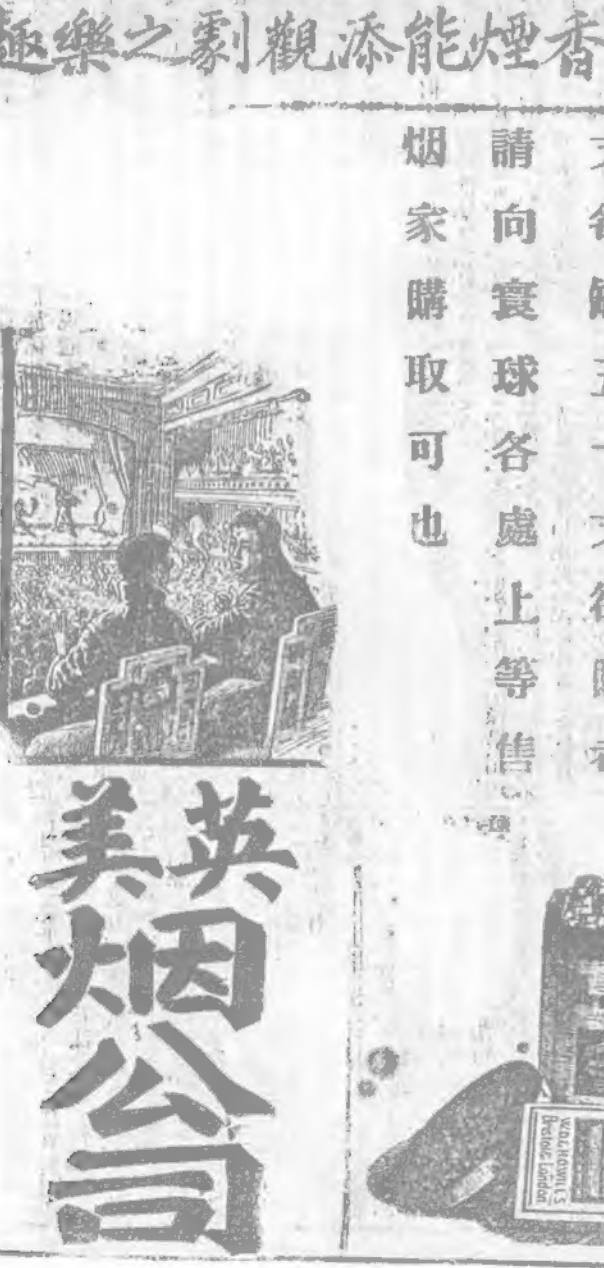 香煙能添觀劇之樂趣
請向寰球各處上等售
烟家購取可也
英美
烟
公
司
W.D. & H.O. WILLS
Bristol & London